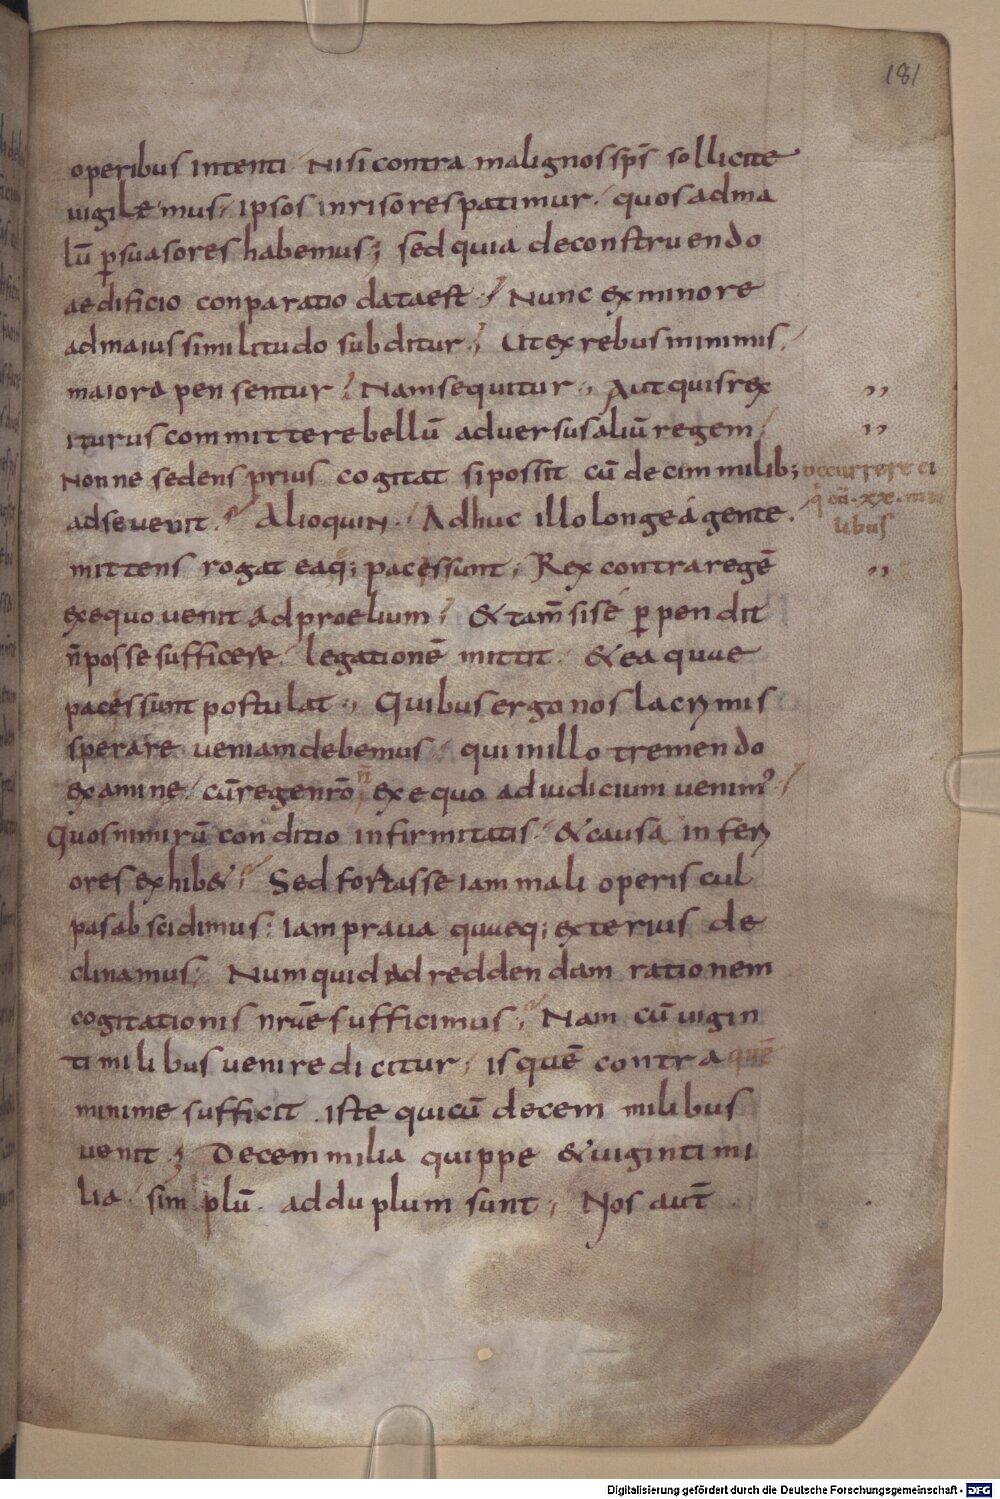 181
operibus intenti Nisi contra malignos sp̅s sollicite
uigilemus, ipsos inrisores patimur, quos ad ma
lū p̱suasores habemus; sed quia de construendo
aedificio conparatio data est; Nunc ex minore
ad maius similitudo subditur; Ut ex rebus minimis,
maiora pensentur; Nam sequitur; Aut quis rex ,,
iturus committere bellū aduersus aliū regem, ,,
Nonne sedens prius cogitat si possit cū decim milib;
occurrere ei
q̇ cū .xx. mi
libus
ad se uenit; Alioquin. Adhuc illo longe agente.
mittens rogat ea q; pacis sunt; Rex contra regē ,,
ex equo uenit ad proelium; & tam̅ si se p̱pendit
n̅ posse sufficere, legationē mittit. & ea quae
paces sunt postulat; Quibus ergo nos lacrymis
sperare ueniam debemus, qui in illo tremendo
examine, cū rege nr̅o n̅ ex equo ad iudicium uenim᾽;
Quos nimirū conditio infirmitatis. & causa inferi
ores exhib&; Sed fortasse iam mali operis cul
pas abscidimus; iam praua quaeq; exterius de
clinamus; Numquid ad reddendam rationem
cogitationis nr̅ae sufficimus; Nam cū uigin
ti milibus uenire dicitur, is quē contra quē
minime sufficit . iste qui cū decem milibus
uenit; Decem milia quippe & uiginti mi
lia. simplū. ad duplum sunt; Nos aut̅
Digitalisierung gefördert durch die Deutsche Forschungsgemeinschaft - DFG